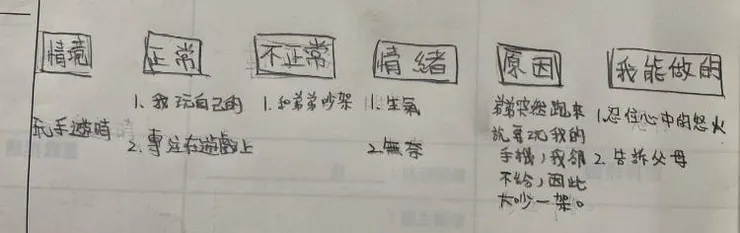 情境
正常
不正常
情緒
原因
我能做的
玩手遊時
1. 我玩自己的
2. 專注在遊戲上
1. 和弟弟吵架
1. 生氣
2. 無奈
弟弟突然跑來
說要玩我的
手機,我卻
不給,因此
大吵一架。
1. 忍住心中的怒火
2. 告訴父母